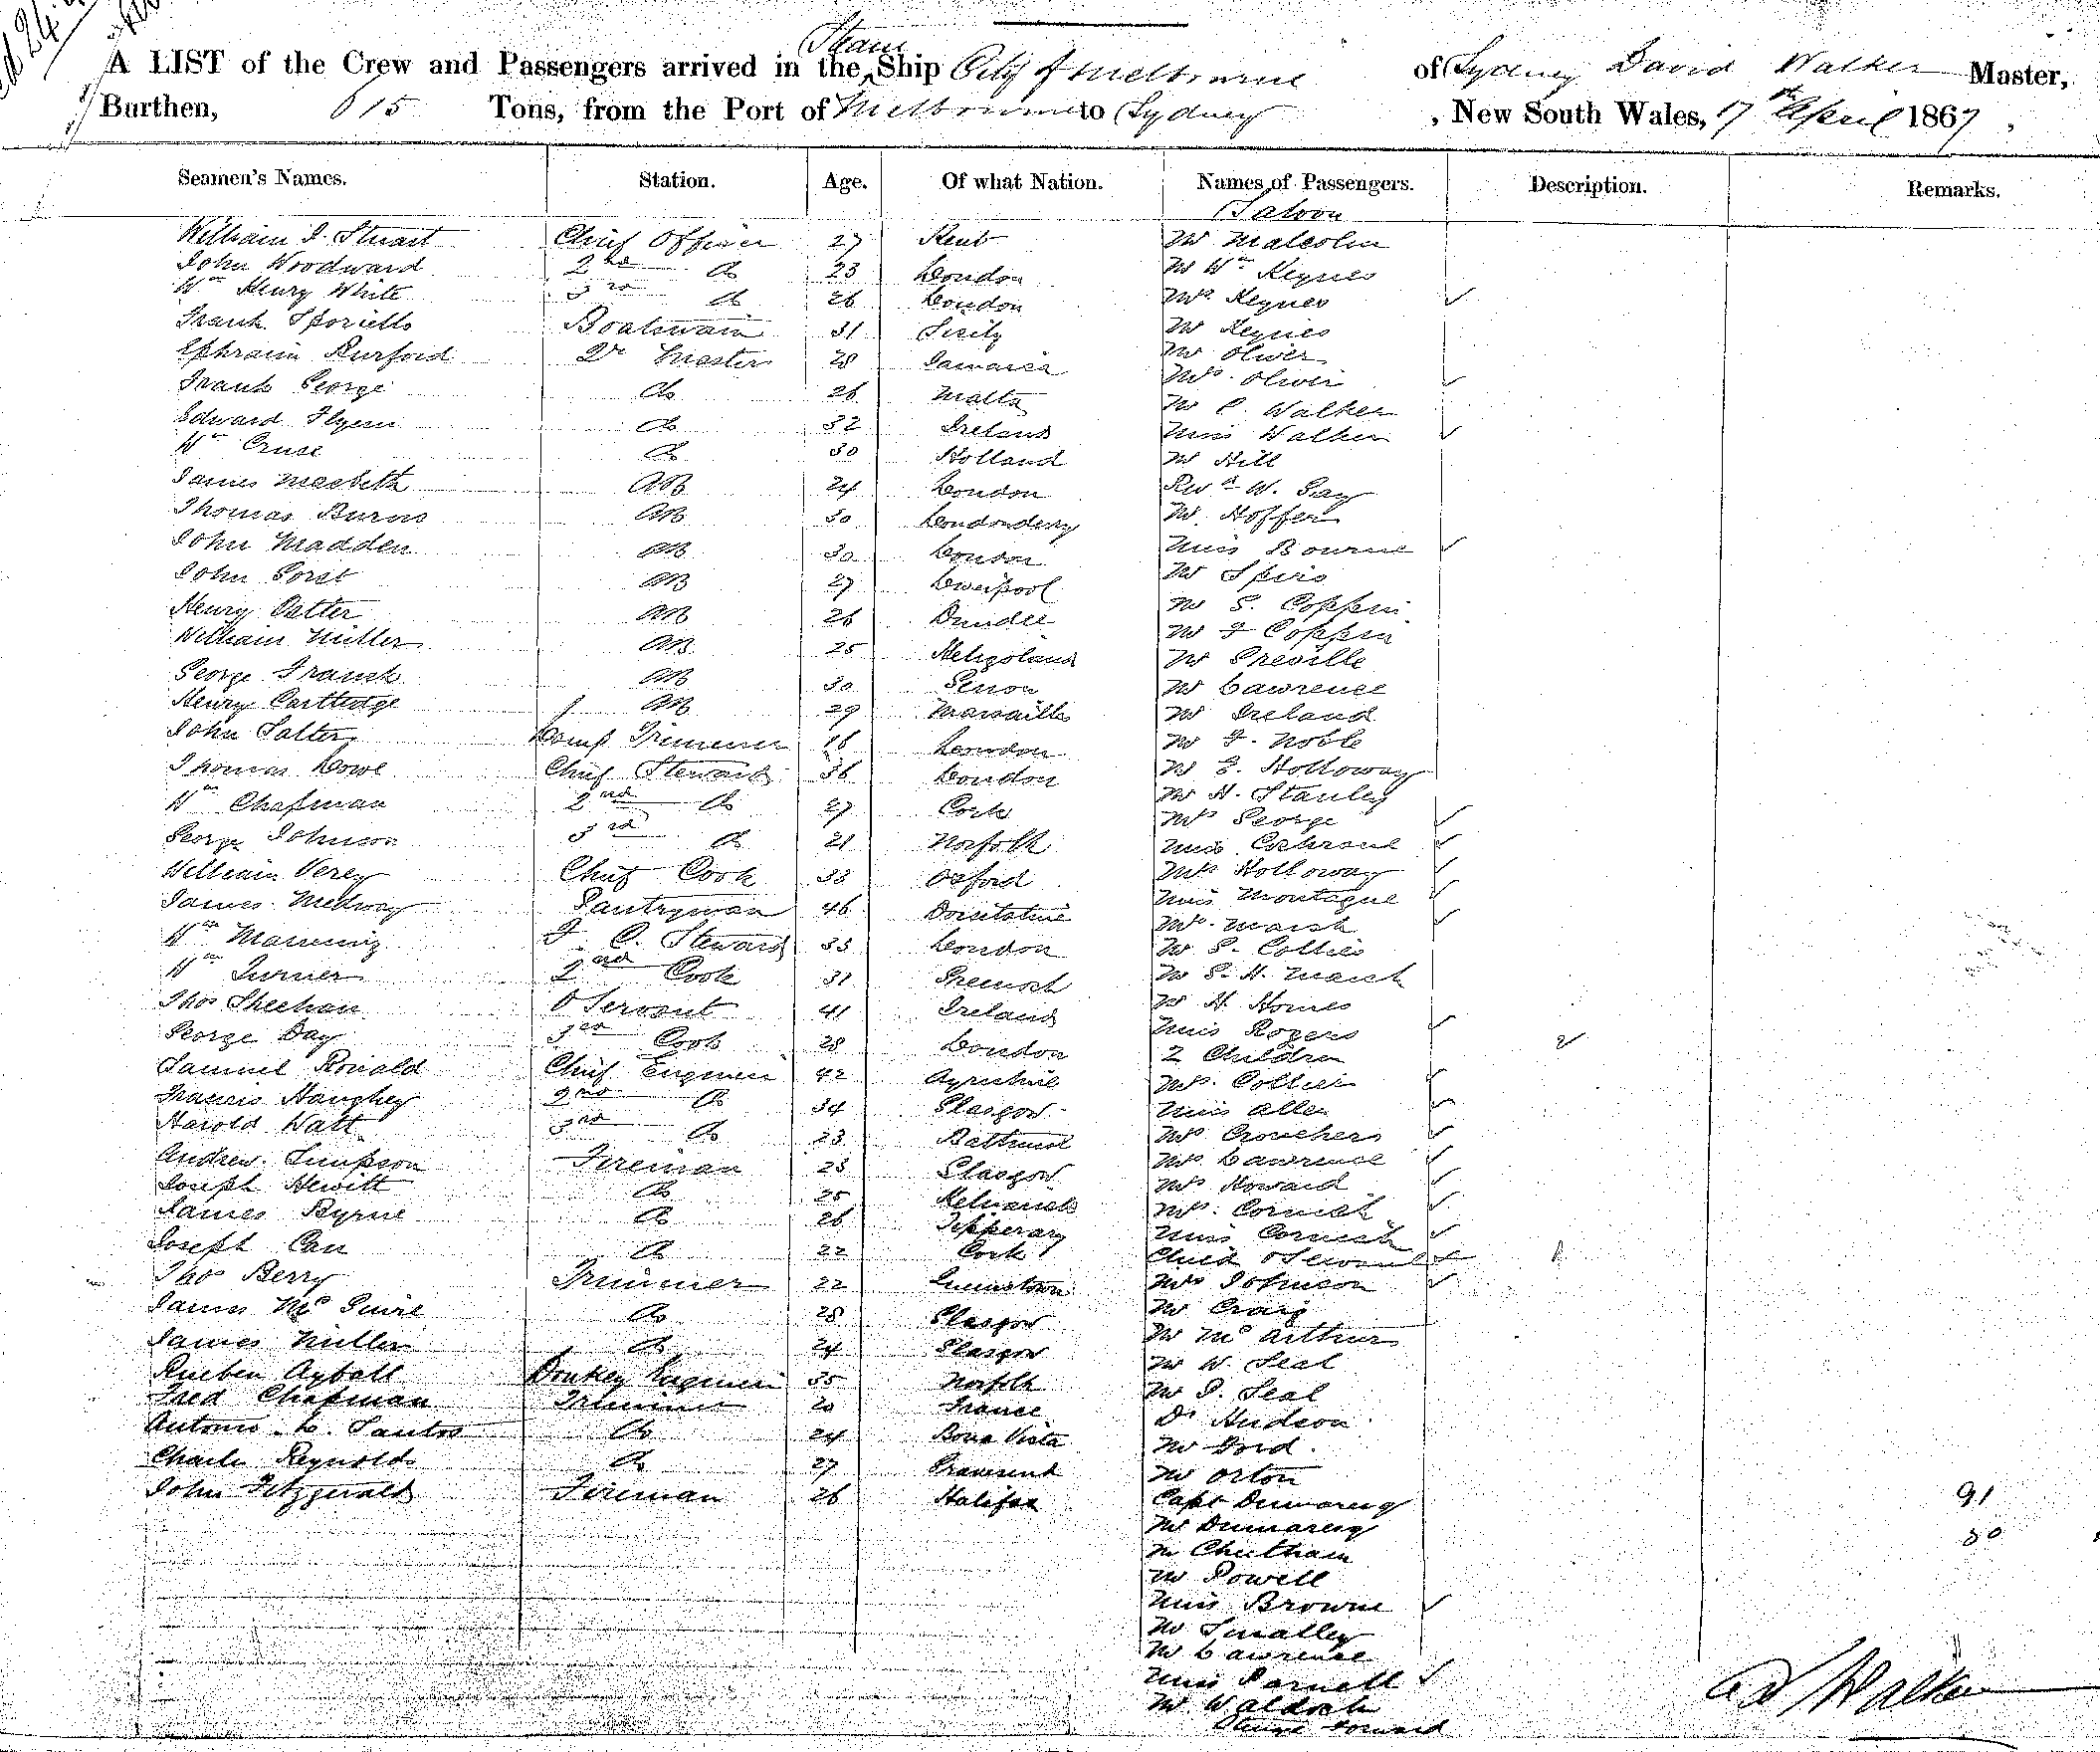 Steam
A LIST of the Crew and Passengers arrived in the Ship City of Melbourne of Sydney David Walker Master,
Burthen, 615 Tons, from the Port of Melbourne to Sydney, New South Wales, 17th April 1867,
Seamen's Names. Station. Age. Of what Nation. Names of Passengers. Description. Remarks.
Saloon
William J. Stuart Chief Officer 27 Kent Mr Malcolm
John Woodward 2nd do 23 London Mr Wm Keynes
Wm Henry White 3rd do 26 London Mrs Keynes ✓
Frank Boatswain 31 Sicily Mr Keynes
Ephraim Qr Master 28 Jamaica Mr Oliver
Frank George do 26 Malta Mrs Oliver ✓
Edward Flynn do 32 Ireland Mr C. Walker
Wm Cruse do 30 Holland Miss Walker ✓
Mr Hill
James Macbeth AB 24 London Revd W. Gay
Thomas Burns AB 30 Londonderry Mr Hoffer
John Madden AB 30 London Miss Bourne ✓
John AB 27 Liverpool Mr Spiro
Henry AB 26 Dundee Mr S. Coppin
William Miller AB 25 Heligoland Mr F Coppin
George Frank AB 30 Mr Greville
Henry Cartledge AB 29 Marseilles Mr Lawrence
Mr Ireland
John Salter Lamp Trimmer 18 London Mr F. Noble
Thomas Lowe Chief Steward 36 London Mr E. Holloway
Wm Chapman 2nd do 27 Cork Mr H. Stanley
Mrs George ✓
George Johnson 3rd do 21 Norfolk Miss Cochrane ✓
William Verey Chief Cook 33 Oxford Mrs Holloway ✓
James Medway Pantryman 46 Dorsetshire Miss Montague ✓
Mrs Marsh ✓
Wm Manning F. C. Steward 33 London Mr S. Collier
Wm Turner 2nd Cook 31 Greenock Mr S. H. Marsh
Thos Sheehan O Servant 41 Ireland Mr H. Homes
George Day 3rd Cook 28 London Miss Rogers ✓
2 Children 2
Samuel Ronald Chief Engineer 42 Ayrshire Mrs Collier ✓
Francis Haughey 2nd do 34 Glasgow Miss Allen ✓
Harold Watt 3rd do 23 Bathurst Mrs Crouchers ✓
Andrew Simpson Fireman 23 Glasgow Mrs Lawrence ✓
Joseph Hewitt do 25 Mrs Howard ✓
James Byrne do 26 Tipperary Mrs Cornish ✓
Miss Cornish ✓
Joseph Carr do 22 Cork Child & Servant ✓ 1
Thos Berry Trimmer 22 Queenstown Mrs Johnson ✓
James McGuire do 28 Glasgow Mr Craig
James Miller do 24 Glasgow Mr McArthur
Mr W. Seal
Rueben Ayball Donkey Engineer 35 Norfolk Mr J. Seal
Fred Chapman Trimmer 20 France Dr Hudson
Antonio L. Santos do 24 Bona Vista Mr Ford
Charles Reynolds do 27 Gravesend Mr Orton
John Fitzgerald Fireman 26 Halifax Capt Dumaresq 91
Mr Dumaresq 30
Mr Cheetham
Mr Powell
Miss Browne ✓
Mr Smalley
Mr Lawrence
Miss Parnell ✓
Mr Waldock
forward
D Walker